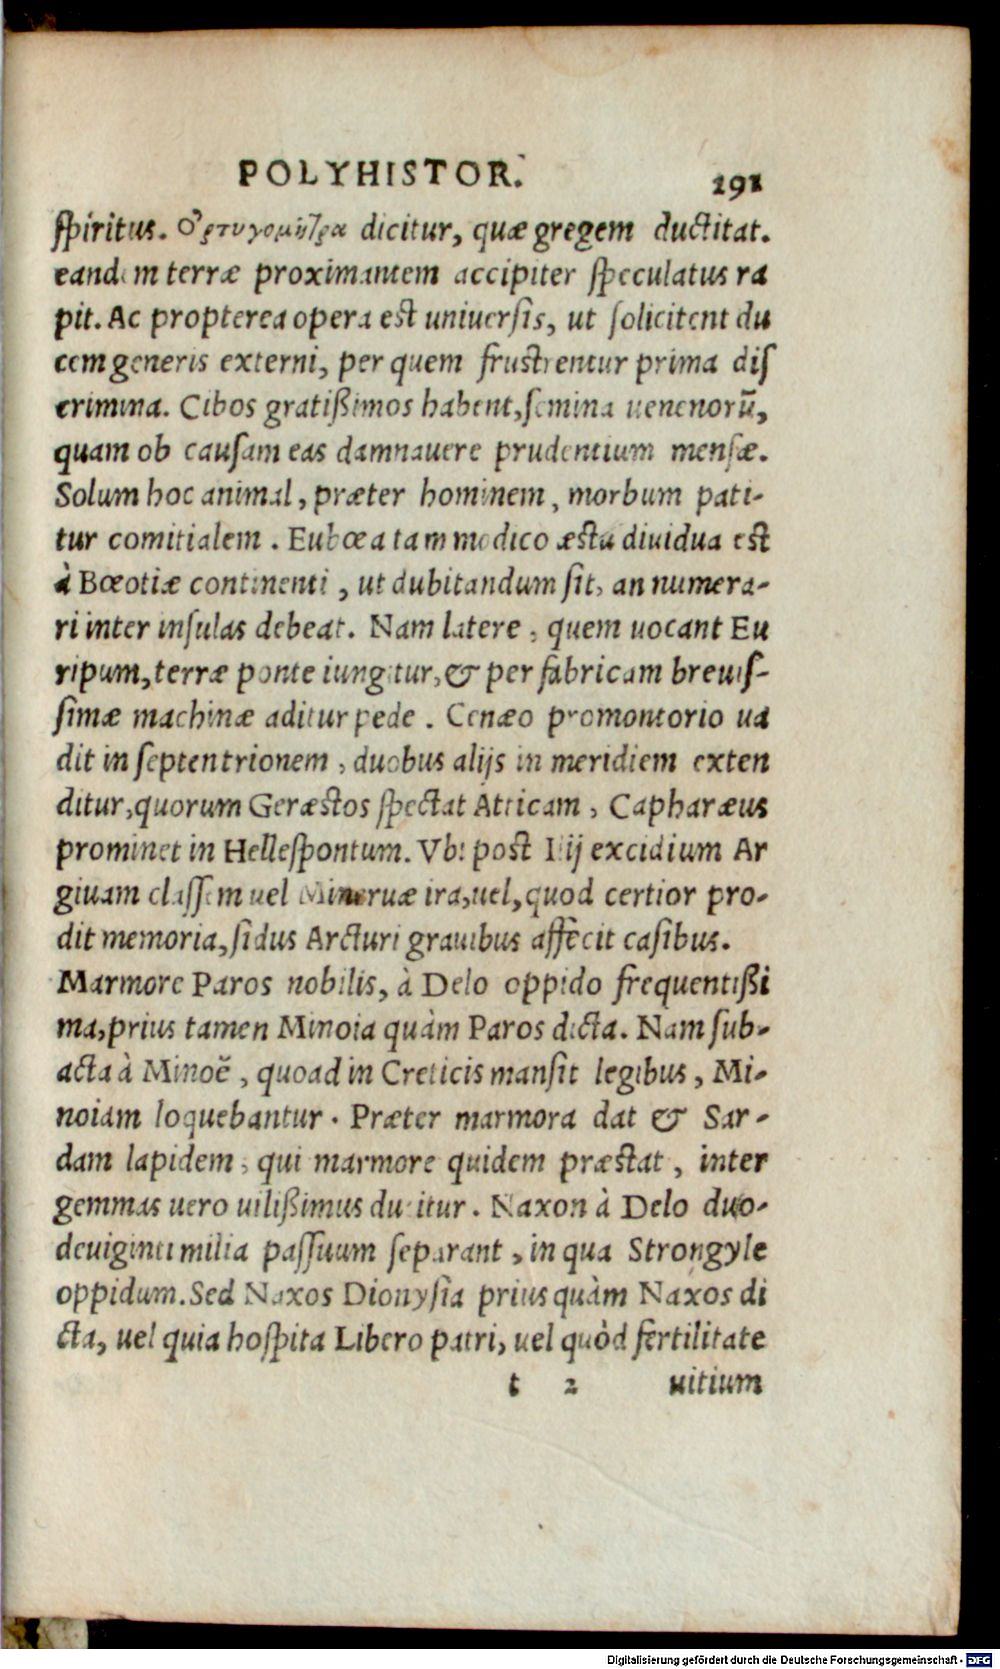 POLYHISTOR. 291
spiritus. Ὀρτυγομήτρα dicitur, quæ gregem ductitat.
eandem terræ proximantem accipiter speculatus ra
pit. Ac propterea opera est uniuersis, ut solicitent du
cem generis externi, per quem frustrentur prima dis
crimina. Cibos gratißimos habent, semina uenenorũ,
quam ob causam eas damnauere prudentium mensæ.
Solum hoc animal, præter hominem, morbum pati-
tur comitialem. Eubœa tam modico æstu diuidua est
à Bœotiæ continenti, ut dubitandum sit, an numera-
ri inter insulas debeat. Nam latere, quem uocant Eu
ripum, terræ ponte iungitur, & per fabricam breuis-
simæ machinæ aditur pede. Cenæo promontorio ua
dit in septentrionem, duobus alijs in meridiem exten
ditur, quorum Geræstos spectat Atticam, Capharæus
prominet in Hellespontum. Vbi post Ilij excidium Ar
giuam classem uel Mineruæ ira, uel, quod certior pro-
dit memoria, sidus Arcturi grauibus affecit casibus.
Marmore Paros nobilis, à Delo oppido frequentißi
ma, prius tamen Minoia quàm Paros dicta. Nam sub-
acta à Minoẽ, quoad in Creticis mansit legibus, Mi-
noiam loquebantur. Præter marmora dat & Sar-
dam lapidem, qui marmore quidem præstat, inter
gemmas uero uilißimus ducitur. Naxon à Delo duo-
deuiginti milia passuum separant, in qua Strongyle
oppidum. Sed Naxos Dionysia prius quàm Naxos di
cta, uel quia hospita Libero patri, uel quòd fertilitate
t 2 uitium
Digitalisierung gefördert durch die Deutsche Forschungsgemeinschaft - DFG